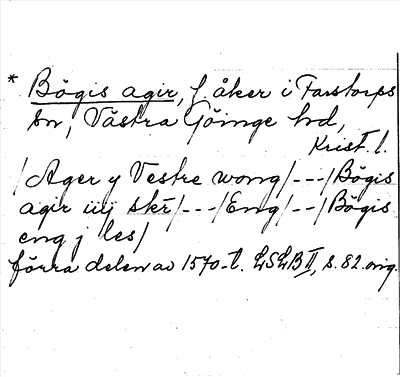 * Bögis agir, f. åker i Farstorps
sn, Västra Göinge hd,
Krist. l.
/Ager y Vestre wong/---/Bögis
agir iiij skr/---/Eng/--/Bögis
eng j les/
förra delen av 1570-t. LSLB II, s. 82. orig.